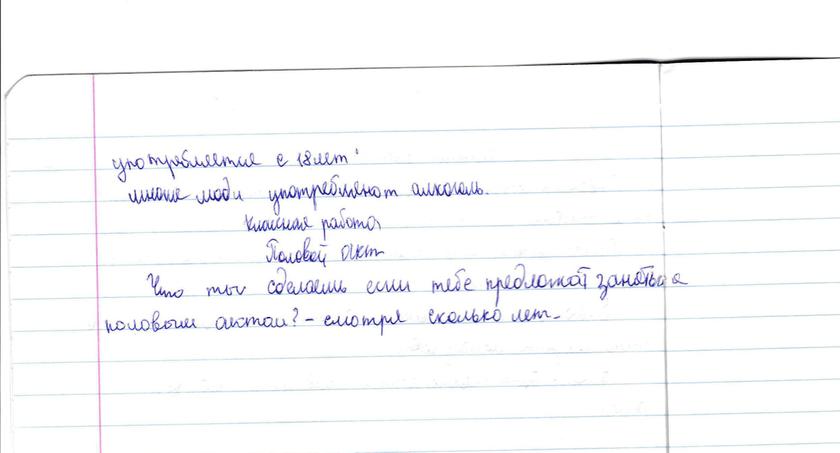 употребляется с 18 лет
многие люди употребляют алкоголь.
Классная работа
Половой акт
Что ты сделаешь если тебе предложат заняться
половым актом? - смотря сколько лет.